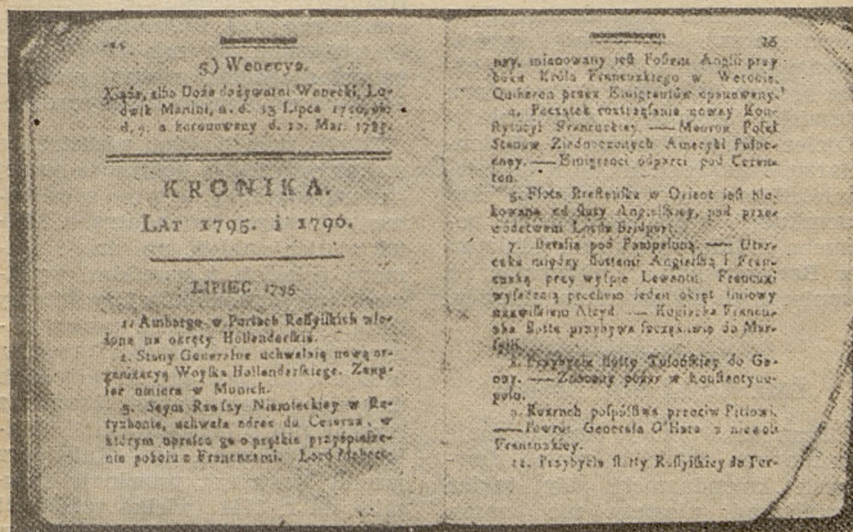 5) Wenecya.
Xiąże, albo Doża dożywotni Wenecki, Lu-
dwik Manini, n. d. 13 Lipca
d. 9. a koronowany d. 10. Mar. 1789.
KRONIKA.
LAT 1795. i 1796.
LIPIEC 1795
1. Ambargo w Portach Rossyiskich wło-
żone na okręty Hollenderskie.
2. Stany Generalne uchwalaią nową or-
ganizacyą Woyska Hollenderskiego.
umiera w Munich.
3. Seym Rzeszy Niemieckiey w Ra-
tyzbonie, uchwala adres do Cesarza, w
którym uprasza go o prętkie przyśpiesze-
nie pokoiu z Francuzami. Lord
26
ney, mianowany iest Posłem Anglii przy
boku Króla Francuzkiego w Weronie.
Quiberon przez Emigrantów opanowany.
4. Początek roztrząśania nowey Kon-
stytucyi Francuzkiey. — Monroe Poseł
Stanów Ziednoczonych Ameryki Pułno-
cney. — Emigranci odparci pod
ton.
5. Flota Brestońska w Orient iest blo-
kowana od floty Angielskiey, pod prze-
wodctwem Lorda Bridport.
7. Batalia pod Pampeluną. — Utar-
czka między flottami Angielską i Fran-
cuzką przy wyspie Lewantu. Francuzi
wysadzaią prochem ieden okręt liniowy
nazwiskiem Alcyd. — Kupiecka Francu-
zka flotta przybywa szczęśliwie do Mar-
sylii.
8. Przybycie flotty Tulońskiey do Ge-
nuy. — Znaczny pożar w Konstantyno-
polu.
9. Rozruch pospólstwa przeciw Pittowi.
— Powrót Generała O'Hara z niewoli
Francuzkiey.
12. Przybycie flotty Rossyiskiey do Por-